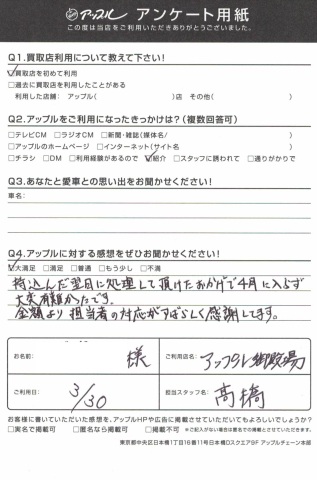 アップル アンケート用紙
この度は当店をご利用いただきありがとうございました。
Q1.買取店利用について教えて下さい!
☑買取店を初めて利用
□過去に買取店を利用したことがある
利用した店舗: アップル( )店 その他( )
Q2.アップルをご利用になったきっかけは?(複数回答可)
□テレビCM □ラジオCM □新聞・雑誌(媒体名/ )
□アップルのホームページ □インターネット(サイト名 )
□チラシ □DM □利用経験があるので ☑紹介 □スタッフに誘われて □通りがかりで
Q3.あなたと愛車との思い出をお聞かせください!
車名:
Q4.アップルに対する感想をぜひお聞かせください!
☑大満足 □満足 □普通 □もう少し □不満
持込んだ翌日に処理して頂けたおかげで4月に入らず
大変有難かったです。
金額より担当者の対応がすばらしく感謝してます。
お名前: 様
ご利用店名: アップル御殿場
ご利用日: 3/30
担当スタッフ名: 高橋
お客様に書いていただいた感想を、アップルHPや広告に掲載させていただいてもよろしいでしょうか?
□実名で掲載可 □匿名なら掲載可 □掲載不可 ※ご記入がない場合は匿名での掲載とさせていただきます。
東京都中央区日本橋1丁目16番11号日本橋Dスクエア9F アップルチェーン本部